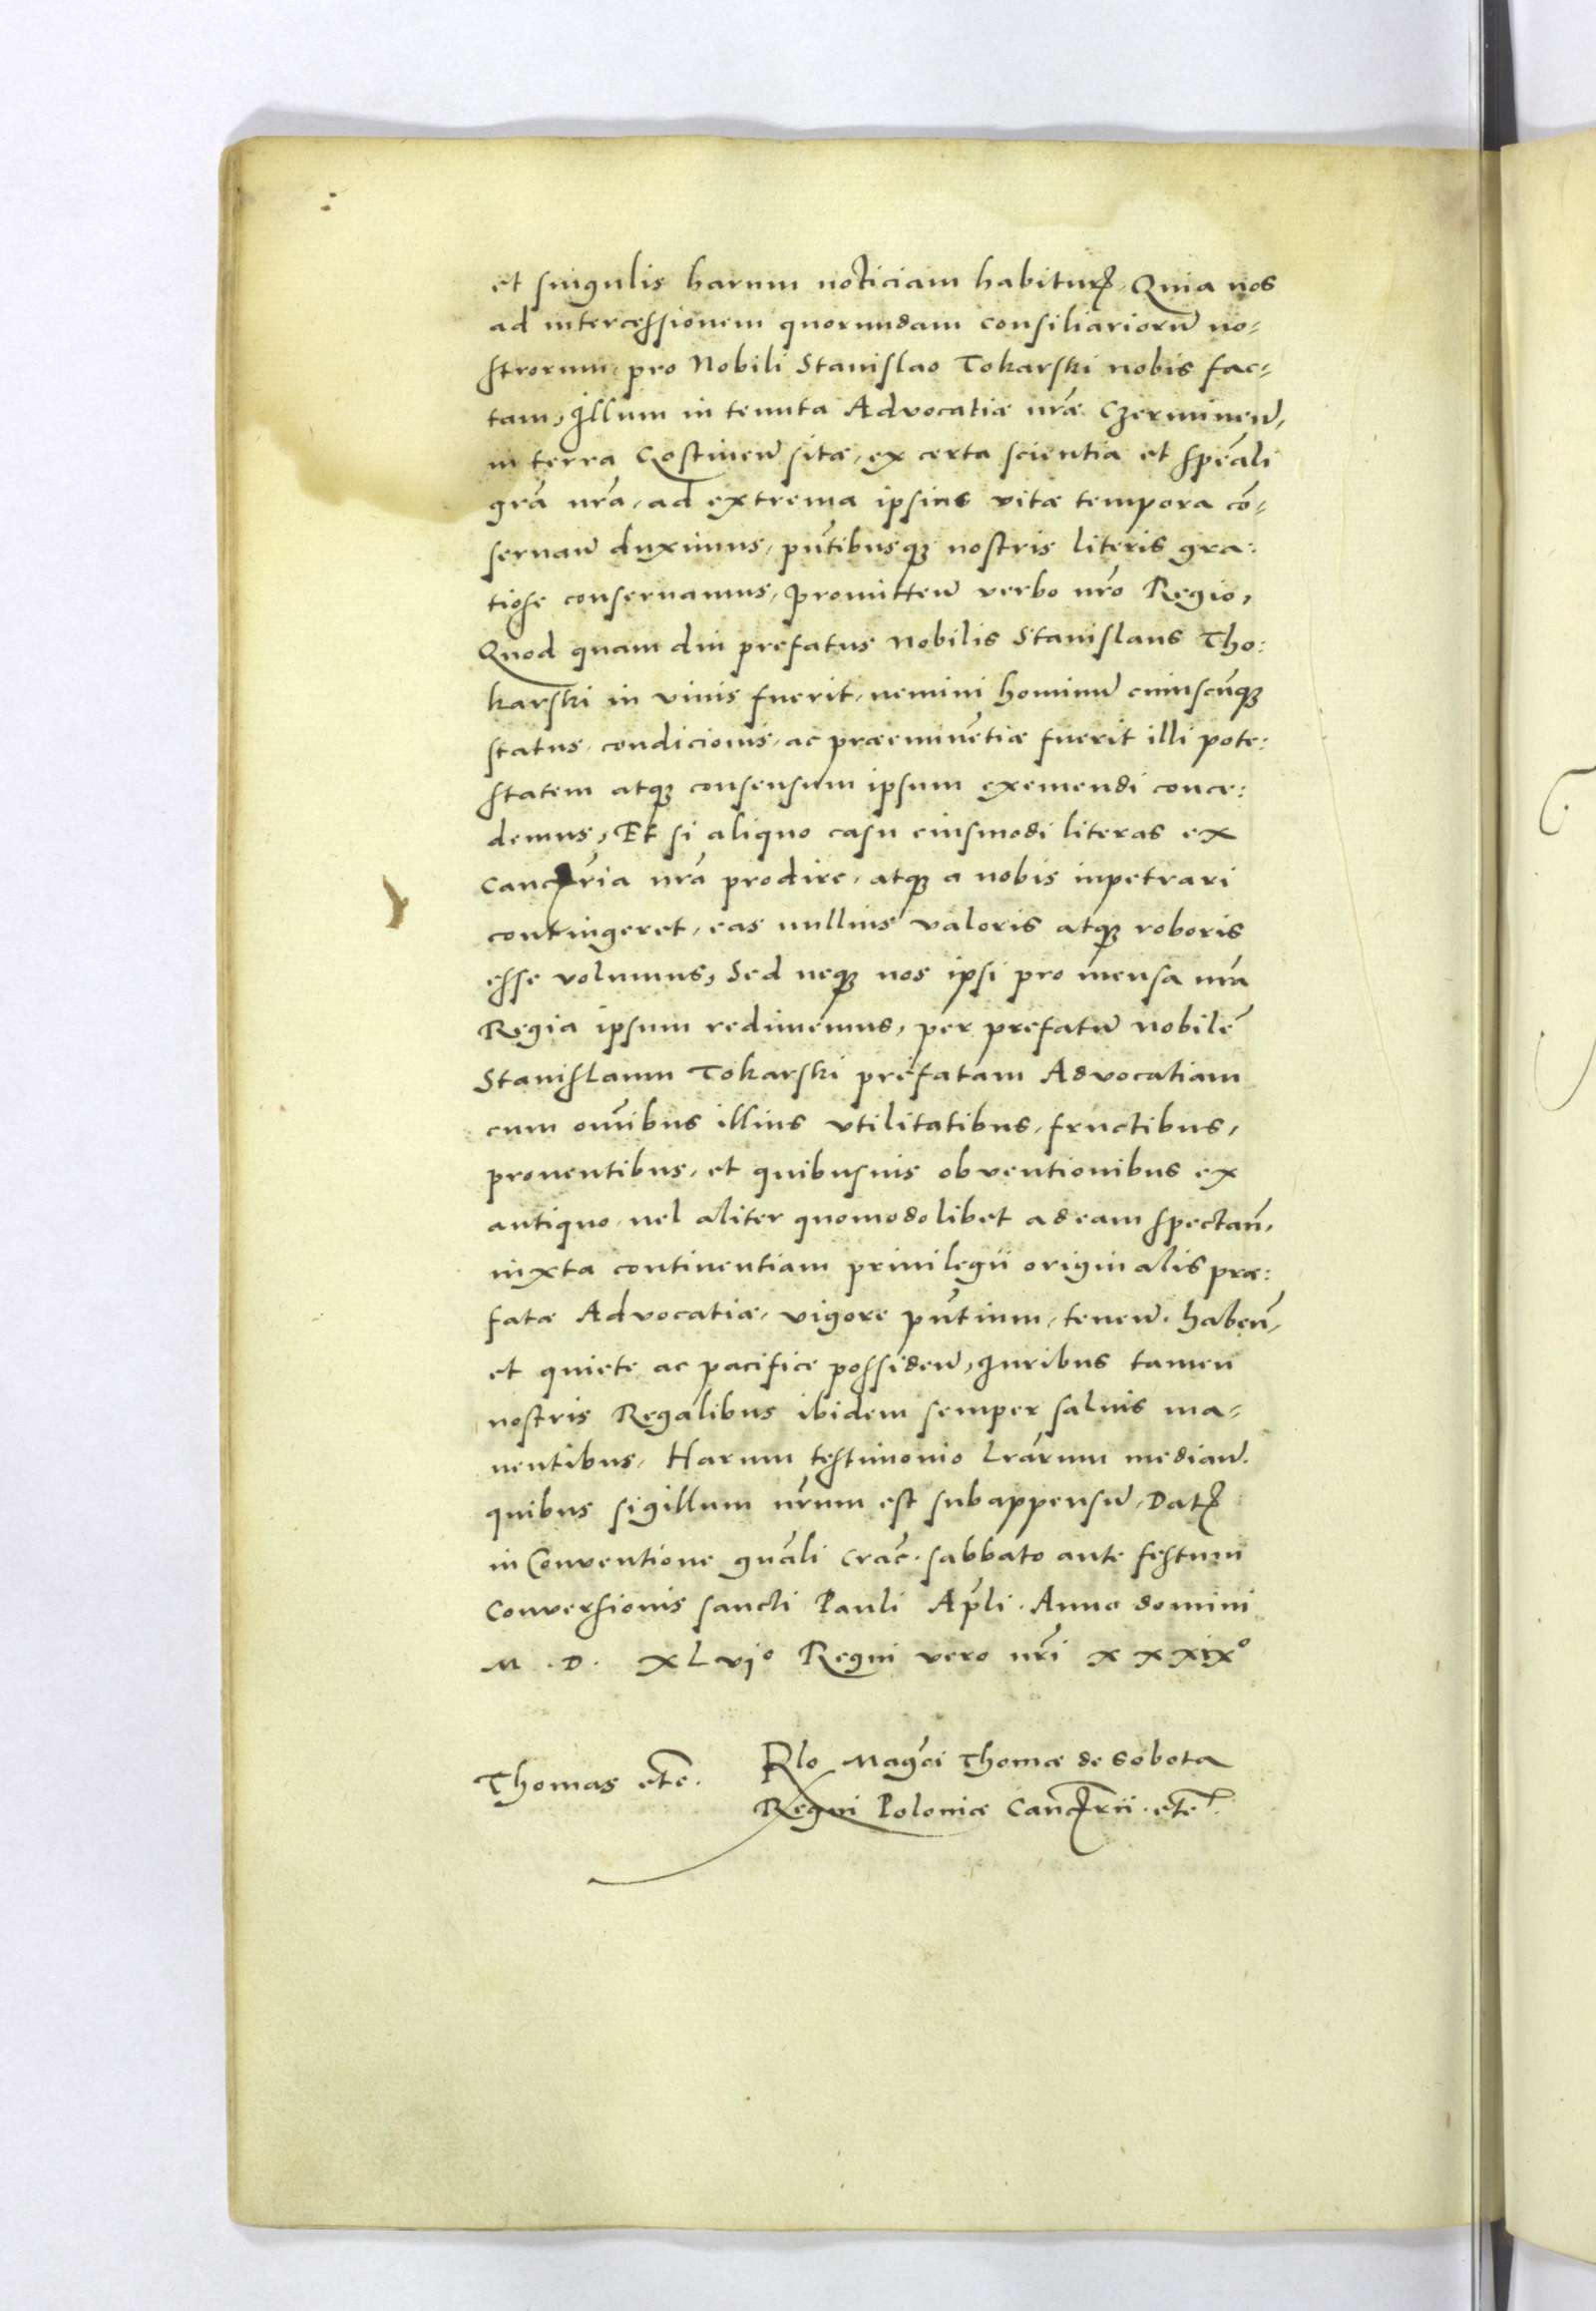 et singulis harum noticiam habituꝝ, Quia nos
ad intercessionem quorundam consiliariorū no-
strorum, pro Nobili Stanislao Tokarski nobis fac-
tam, Illum in tenuta Advocatiæ nr̄æ Czerminen̄,
in terra Gostinen̄ sitæ, ex certa scientia et sp̄eali
gr̄a nr̄a, ad extrema ipsius vitæ tempora cō-
seruan̄ duximus, pn̄tibusqꝫ nostris literis gra:
tiose conseruamus, Promitten̄ verbo nr̄o Regio,
Quod quam diu prefatus Nobilis Stanislaus Tho:
karski in viuis fuerit, nemini hominū cuiuscūqꝫ
status, condicionis, ac præeminētiæ fuerit illi pote:
statem atqꝫ consensum ipsum exemendi conce:
demus, Et si aliquo casu eiusmodi literas ex
Canclr̄ia nr̄a prodire, atqꝫ a nobis inpetrari
contingeret, eas nullius valoris atqꝫ roboris
esse volumus, Sed neqꝫ nos ipsi pro mensa nr̄a
Regia ipsum redimemus, per prefatū Nobilē
Stanislaum Tokarski prefatam Advocatiam
cum om̄ibus illius vtilitatibus, fructibus,
prouentibus, et quibusuis obventionibus ex
antiquo, uel aliter quomodolibet ad eam spectan̄,
iuxta continentiam priuilegii originalis præ:
fatæ Advocatiæ, vigore pn̄tium, tenen̄. haben̄,
et quiete ac pacifice possiden̄, Iuribus tamen
nostris Regalibus ibidem semper saluis ma-
nentibus, Harum testimonio lr̄arum median̄.
quibus sigillum nr̄um est subappensū, Datꝝ
in Conventione gn̄ali Crac̄. sabbato ante festum
Conversionis sancti Pauli Ap̄li. Anno domini
M. D. XLvjº Regni vero nr̄i xxxixº
Thomas etc̄. Rlo Magc̄i Thomæ de Sobota
Regni Poloniæ Canclr̄ii. etc̄.